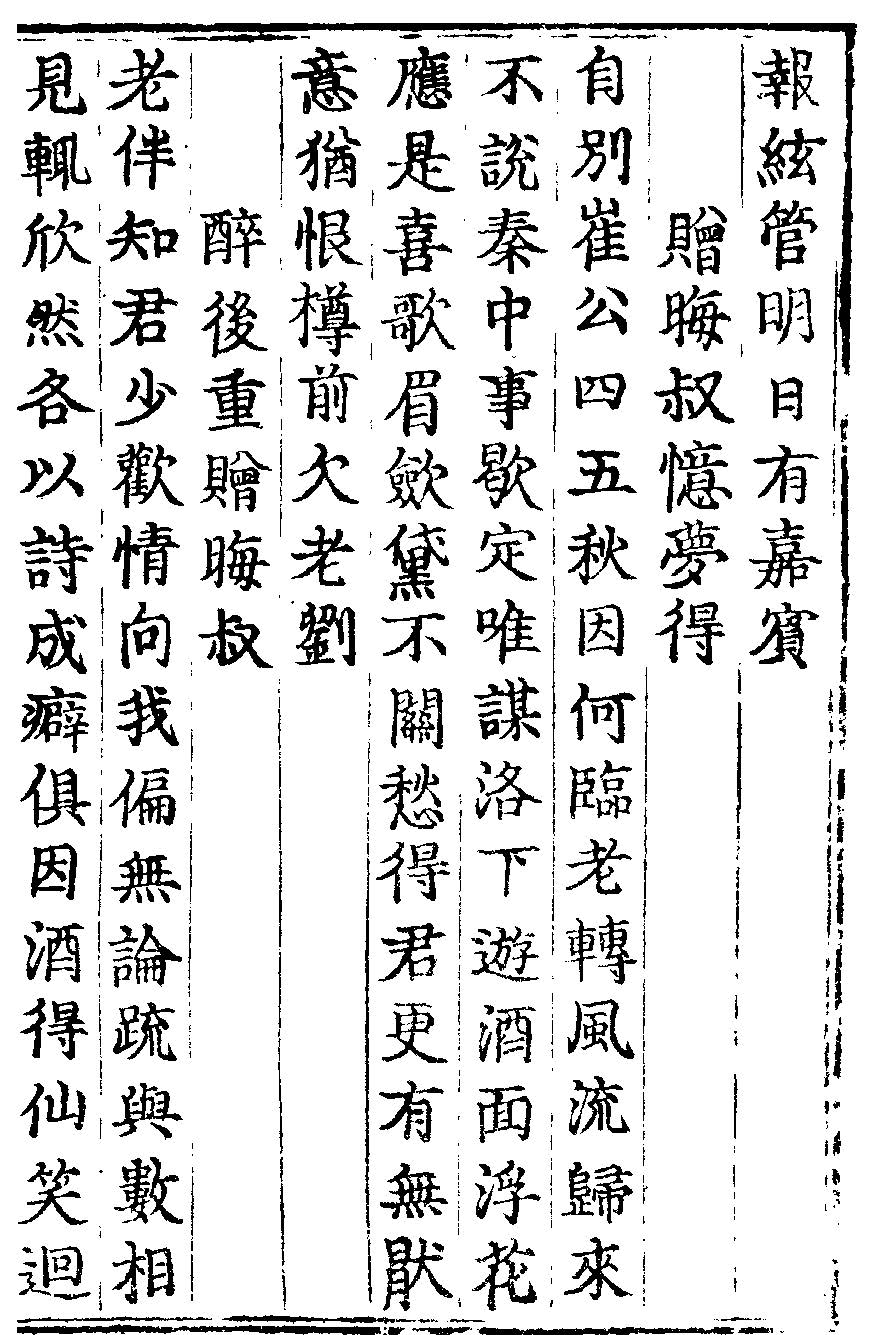 報絃管明日有嘉賓
贈晦叔憶夢得
自別崔公四五秋因何臨老轉風流歸來
不說秦中事歇定唯謀洛下遊酒面浮花
應是喜歌眉斂黛不關愁得君更有無猒
意猶恨樽前欠老劉
醉後重贈晦叔
老伴知君少歡情向我偏無論疏與數相
見輒欣然各以詩成癖俱因酒得仙笑迴